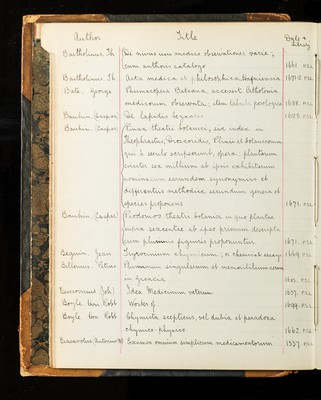 Author Title Date + Library
Bartholinus. Th De nivis usu medico observationes variæ;
cum authoris catalogo 1661. M.S.L.
Bartholinus. Th Acta medica et philosophica Hafniensia 1671-2. M.S.L.
Bate, George Pharmacopœa Bateana, accessit
medicorum observata; item 1688. M.S.L.
Bauhin. Caspar De lapidis bezaar 1625. M.S.L.
Bauhin. Caspar Pinax theatri botanici, sive index in
Theophrastus, Dioscoridis, Plinii et botanicorum
qui à seculo scripserunt, opera: plantarum
circiter sex millium ab ipsis exhibitarum
nomina cum earundem synonymiis et
differentiis methodice secundum genera et
species proponens 1671. M.S.L.
Bauhin. Caspar Prodomos theatri botanici in quo plantæ
supra sexcentæ ab ipso primum descriptæ
cum plurimis figuris proponuntur 1671. M.S.L.
Beguin. Jean Tyrocinium chymicum; or chemical essays 1669. M.S.L.
Bellonius. Petrus Plurimarum singularium et memorabilium rerum
in Græcia 1605. M.S.L.
(Joh) Idea Medicinæ veterum 1637. M.S.L.
Boyle Hon Robt Works of 1699. M.S.L.
Boyle Hon Robt Chymista scepticus, vel dubia et paradoxa
chymico-physica 1662. M.S.L.
Brasavolus (Antonius M) Examen omnium simplicium medicamentorum 1537. M.S.L.